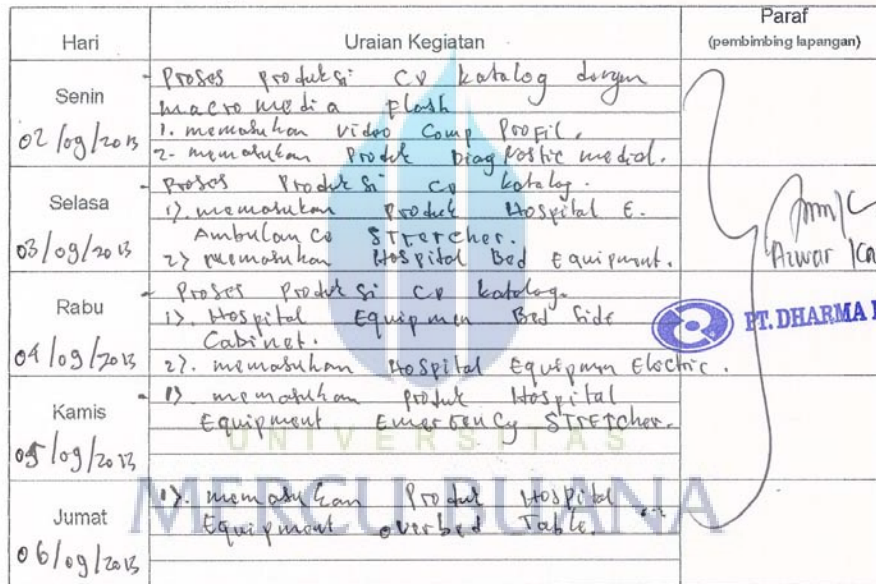 Hari Uraian Kegiatan Paraf
(pembimbing lapangan)
Senin
02/09/2013
- Proses produksi CD katalog dengan
macromedia Flash
1. memasukan video Comp Profil.
2. memasukan Produk Diagnostic medial.
Selasa
03/09/2013
- Proses Produksi CD katalog.
1). memasukan Produk Hospital E.
Ambulance STretcher.
2) memasukan Hospital Bed Equipment.
Azwar
Rabu
04/09/2013
- Proses Produksi CD katalog.
1). Hospital Equipmen Bed Side
Cabinet.
2). memasukan Hospital Equipmen Electric.
PT. DHARMA
Kamis
05/09/2013
1). memasukan Produk Hospital
Equipment Emergency STretcher.
UNIVERSITAS
MERCU BUANA
Jumat
06/09/2013
1). memasukan Produk Hospital
Equipment overbed Table.